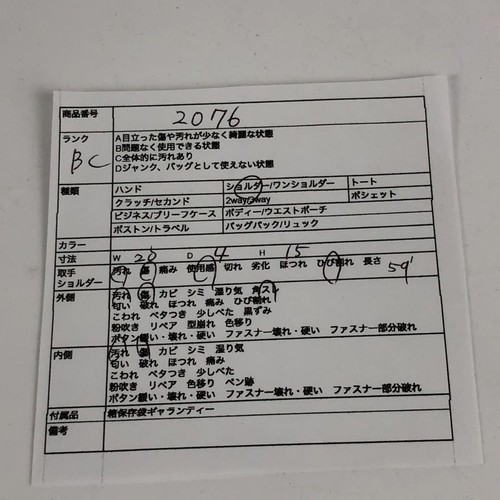 商品番号 2076
ランク BC
A目立った傷や汚れが少なく綺麗な状態
B問題なく使用できる状態
C全体的に汚れあり
Dジャンク、バッグとして使えない状態
種類 ハンド ショルダー/ワンショルダー トート
クラッチ/セカンド 2way/3way ポシェット
ビジネス/ブリーフケース ボディー/ウエストポーチ
ボストン/トラベル バッグパック/リュック
カラー
寸法 W 20 D 4 H 15
取手 汚れ 傷 痛み 使用感 切れ 劣化 ほつれ ひび割れ 長さ 59
ショルダー
外側 汚れ 傷 カビ シミ 湿り気 角スレ
匂い 破れ ほつれ 痛み ひび割れ
こわれ ベタつき 少しべた 黒ずみ
粉吹き リペア 型崩れ 色移り
ボタン緩い・壊れ・硬い ファスナー壊れ・硬い ファスナー部分破れ
内側 汚れ 傷 カビ シミ 湿り気
匂い 破れ ほつれ 痛み
こわれ ベタつき 少しべた
粉吹き リペア 色移り ペン跡
ボタン緩い・壊れ・硬い ファスナー壊れ・硬い ファスナー部分破れ
付属品 箱保存袋ギャランティー
備考